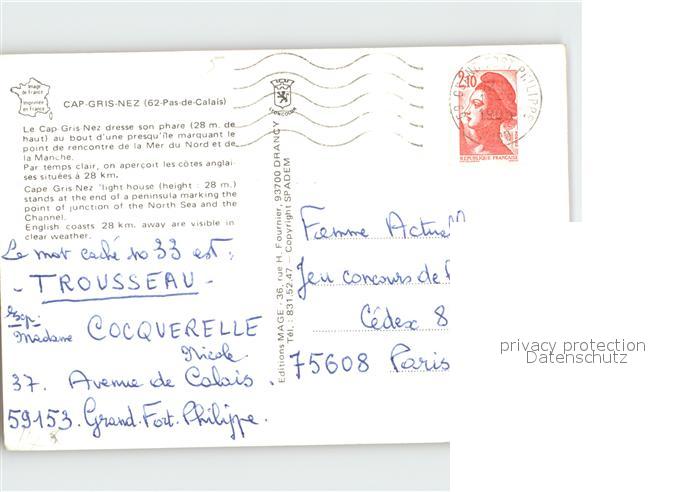 Image
de France
Imprimée
en France
CAP-GRIS-NEZ (62-Pas-de-Calais)
Le Cap Gris-Nez dresse son phare (28 m. de
haut) au bout d'une presqu'île marquant le
point de rencontre de la Mer du Nord et de
la Manche.
Par temps clair, on aperçoit les côtes anglai-
ses situées à 28 km.
Cape Gris Nez "light house (height : 28 m.)
stands at the end of a peninsula marking the
point of junction of the North Sea and the
Channel.
English coasts 28 km. away are visible in
clear weather.
Le mot caché no 33 est :
- TROUSSEAU -
Exp:
Madame COCQUERELLE
Nicole
37. Avenue de Calais.
59153. Grand.Fort.Philippe.
Editions MAGE - 36, rue H. Fournier, 93700 DRANCY
Tél. : 831.52.47 - Copyright SPADEM
2,10
REPUBLIQUE FRANÇAISE
Femme Actue
Jeu concours de
Cédex 8
75608 Paris
privacy protection
Datenschutz